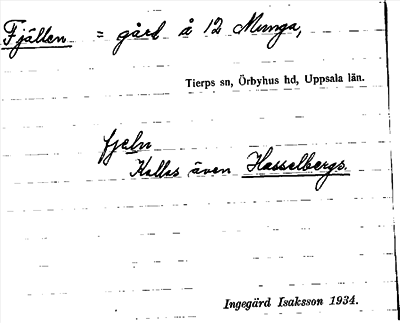 Fjällen = gård å 12 Munga,
Tierps sn, Örbyhus hd, Uppsala län.
fjeln
Kallas även Hasselbergs.
Ingegärd Isaksson 1934.